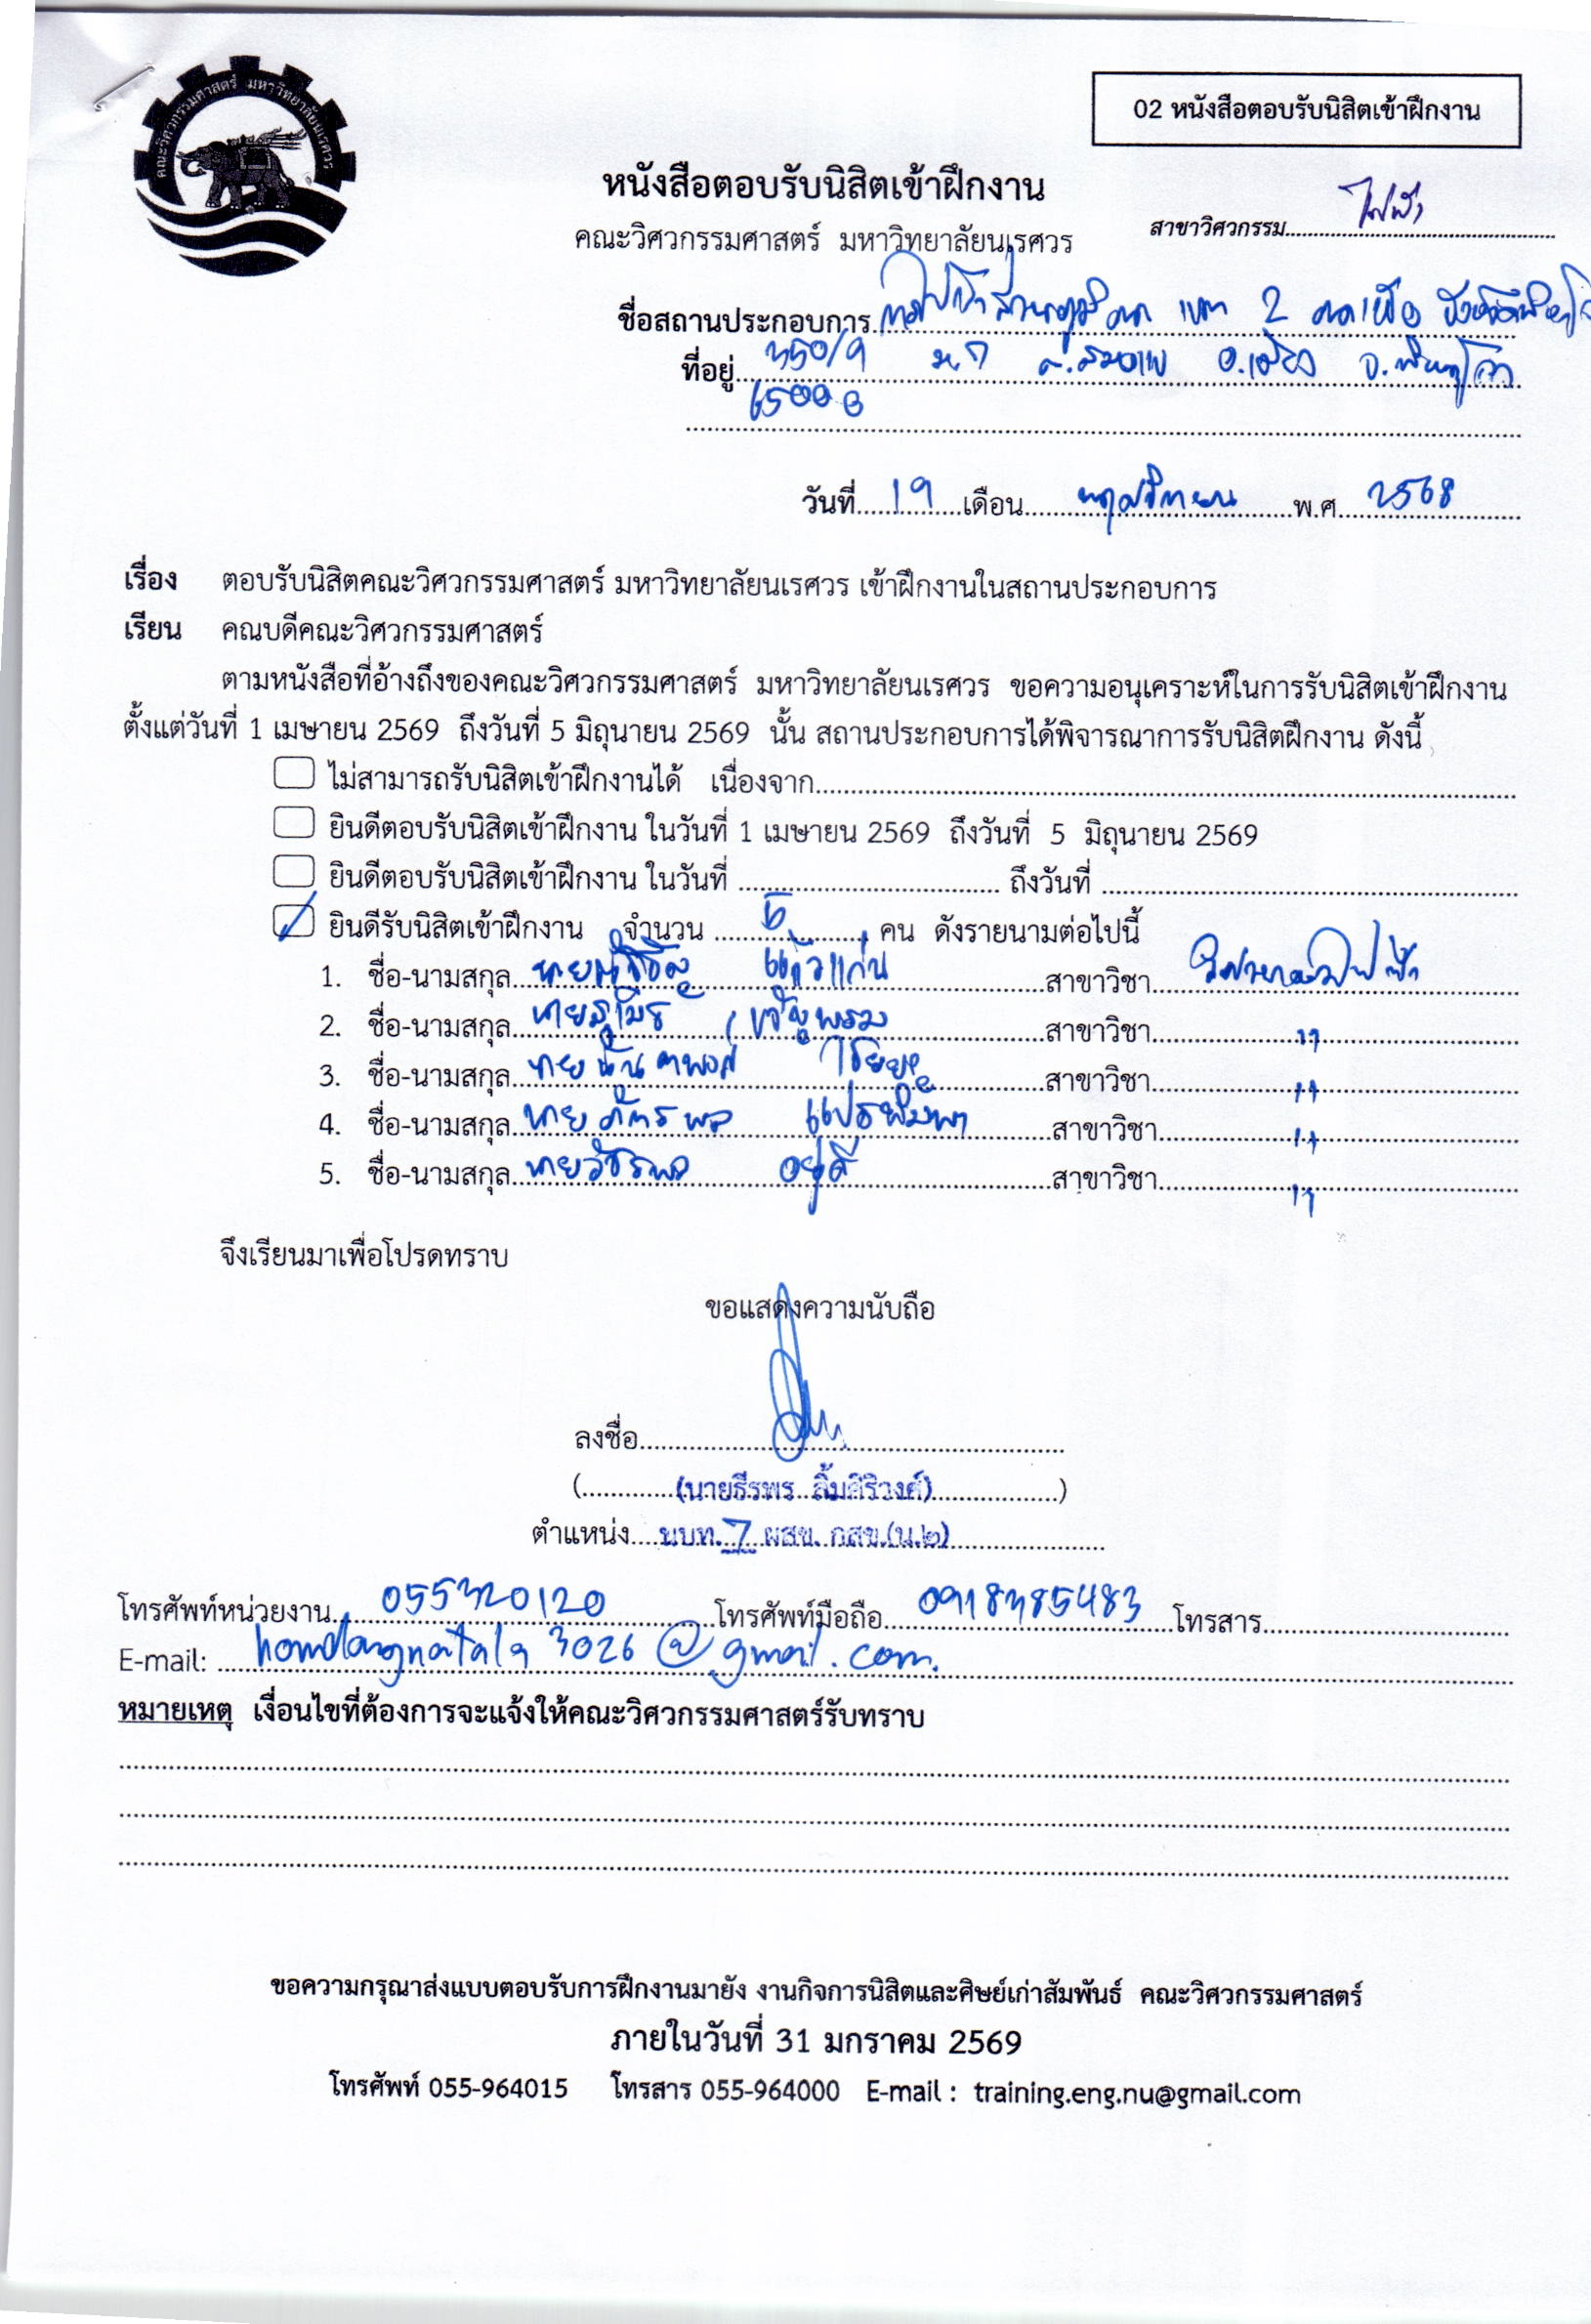 คณะวิศวกรรมศาสตร์ มหาวิทยาลัยนเรศวร
02 หนังสือตอบรับนิสิตเข้าฝึกงาน
หนังสือตอบรับนิสิตเข้าฝึกงาน
สาขาวิศวกรรม ไฟฟ้า
คณะวิศวกรรมศาสตร์ มหาวิทยาลัยนเรศวร
ชื่อสถานประกอบการ การไฟฟ้าส่วนภูมิภาค เขต 2 ภาคเหนือ จังหวัดพิษณุโลก
ที่อยู่ 350/9 ม.7 ต.สมอแข อ.เมือง จ.พิษณุโลก
65000
วันที่ 19 เดือน พฤศจิกายน พ.ศ. 2568
เรื่อง ตอบรับนิสิตคณะวิศวกรรมศาสตร์ มหาวิทยาลัยนเรศวร เข้าฝึกงานในสถานประกอบการ
เรียน คณบดีคณะวิศวกรรมศาสตร์
ตามหนังสือที่อ้างถึงของคณะวิศวกรรมศาสตร์ มหาวิทยาลัยนเรศวร ขอความอนุเคราะห์ในการรับนิสิตเข้าฝึกงาน
ตั้งแต่วันที่ 1 เมษายน 2569 ถึงวันที่ 5 มิถุนายน 2569 นั้น สถานประกอบการได้พิจารณาการรับนิสิตฝึกงาน ดังนี้
ไม่สามารถรับนิสิตเข้าฝึกงานได้ เนื่องจาก
ยินดีตอบรับนิสิตเข้าฝึกงาน ในวันที่ 1 เมษายน 2569 ถึงวันที่ 5 มิถุนายน 2569
ยินดีตอบรับนิสิตเข้าฝึกงาน ในวันที่ ถึงวันที่
ยินดีรับนิสิตเข้าฝึกงาน จำนวน 5 คน ดังรายนามต่อไปนี้
1. ชื่อ-นามสกุล แก้วแก่น สาขาวิชา วิศวกรรมไฟฟ้า
2. ชื่อ-นามสกุล นายสุเมธ ขวัญพรม สาขาวิชา "
3. ชื่อ-นามสกุล นายนันตพงศ์ ไชยยะ สาขาวิชา "
4. ชื่อ-นามสกุล นายภัทรพล แปรพิมพา สาขาวิชา "
5. ชื่อ-นามสกุล นายวัชรพล อยู่ดี สาขาวิชา "
จึงเรียนมาเพื่อโปรดทราบ
ขอแสดงความนับถือ
ลงชื่อ
(นายธีรพร ลิ้มศิริวงศ์)
ตำแหน่ง นบท. 7 ผสข. กสข.(น.๒)
โทรศัพท์หน่วยงาน 055320120 โทรศัพท์มือถือ 0918385483 โทรสาร
E-mail: 3026@gmail.com.
หมายเหตุ เงื่อนไขที่ต้องการจะแจ้งให้คณะวิศวกรรมศาสตร์รับทราบ
ขอความกรุณาส่งแบบตอบรับการฝึกงานมายัง งานกิจการนิสิตและศิษย์เก่าสัมพันธ์ คณะวิศวกรรมศาสตร์
ภายในวันที่ 31 มกราคม 2569
โทรศัพท์ 055-964015 โทรสาร 055-964000 E-mail : training.eng.nu@gmail.com